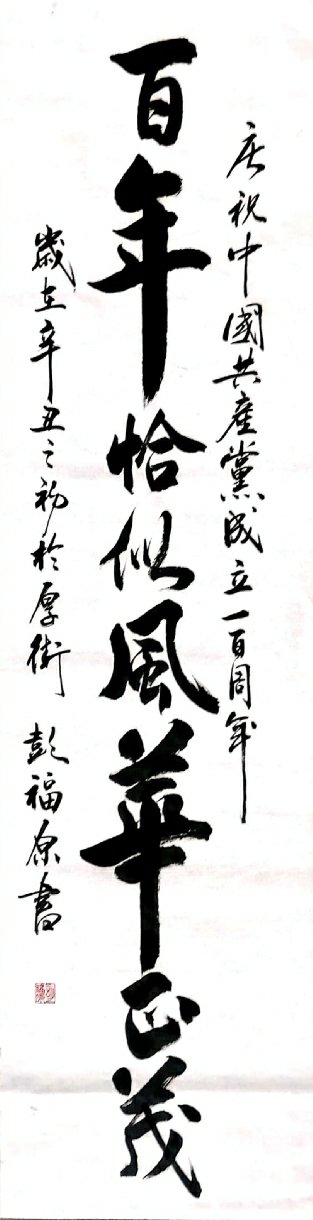 庆祝中國共產黨成立一百周年
百年恰似風華正茂
歲在辛丑之初於厚街 彭福原書